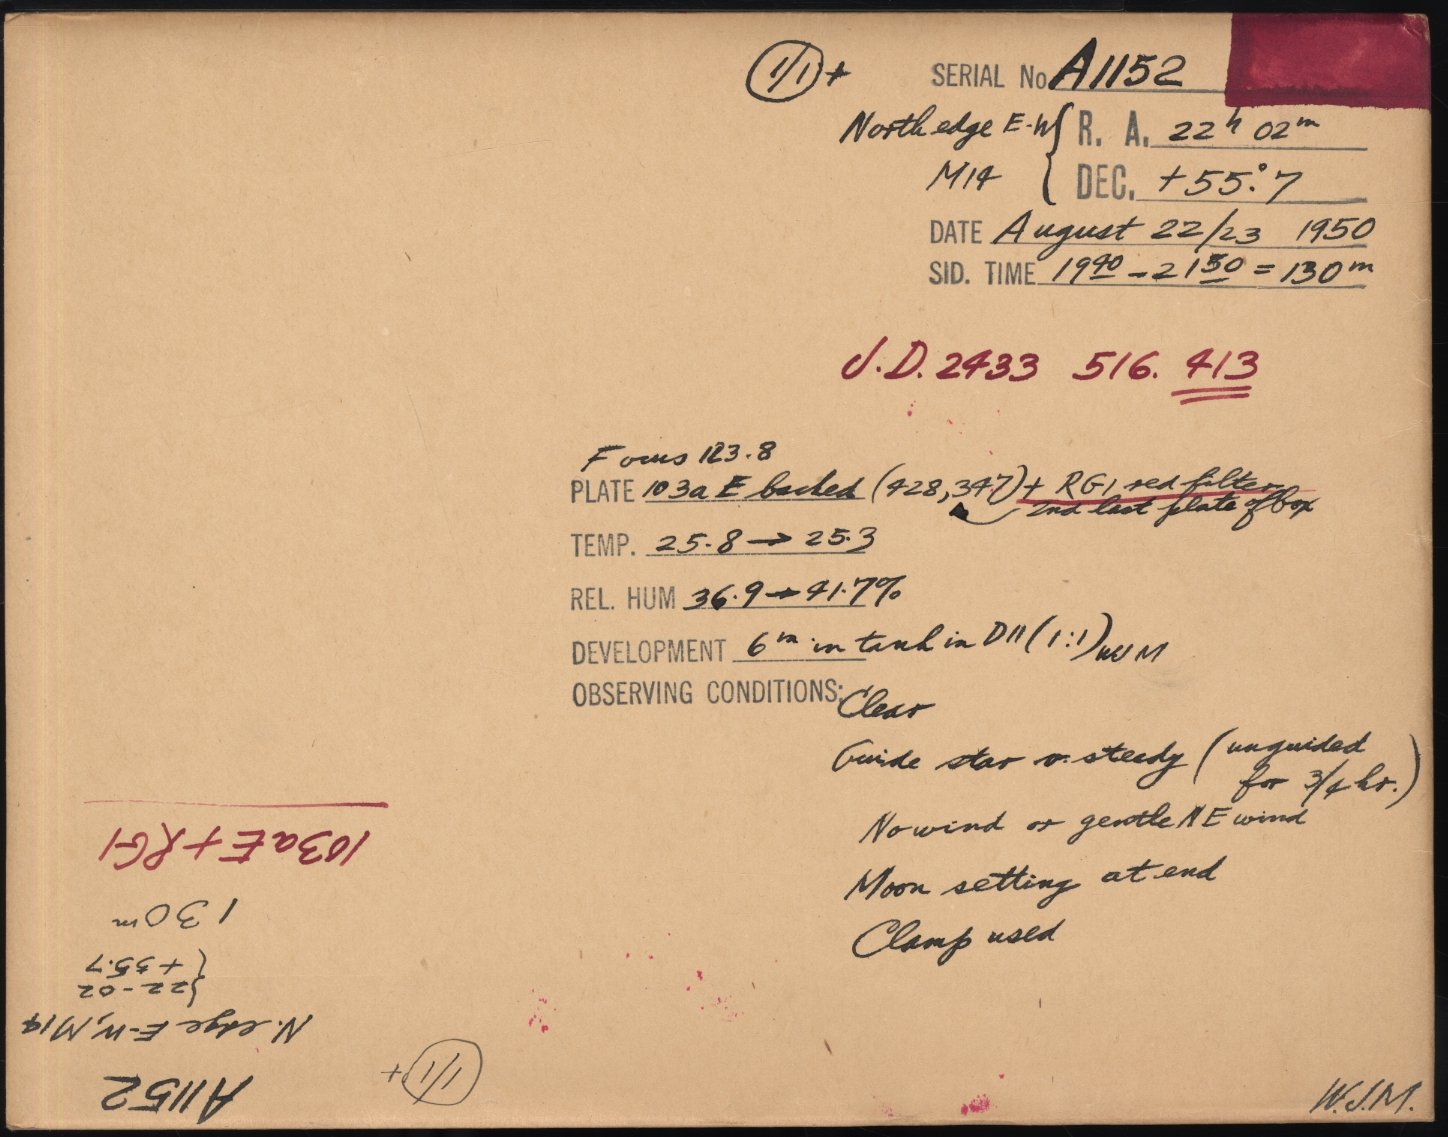 1/1 + SERIAL No. A1152
North edge E-W { R. A. 22h 02m
M14 DEC. +55°.7
DATE August 22/23 1950
SID. TIME 1940 - 2150 = 130m
J.D. 2433 516. 413
Focus 123.8
PLATE 103a E backed (428,347) + RG1 red filter
2nd last plate of box
TEMP. 25.8 → 25.3
REL. HUM 36.9 → 41.7%
DEVELOPMENT 6m in tank in D11 (1:1) WJM
OBSERVING CONDITIONS: Clear
Guide star v. steady (unguided
for 3/4 hr.)
No wind or gentle NE wind
Moon setting at end
Clamp used
W.J.M.
1/1 +
A1152
N. edge E-W, M14
{22-02
{+55.7
130m
103aE + RG1